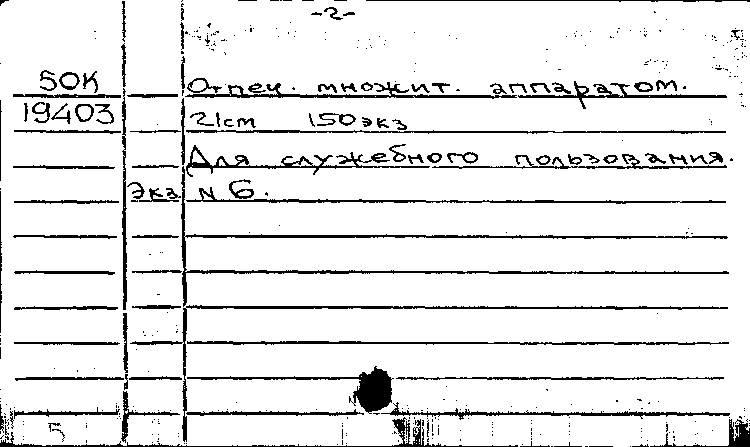 -2-
50К Отпеч. множит. аппаратом.
19403 21см 150экз
Для служебного пользования.
Экз N 6.
5